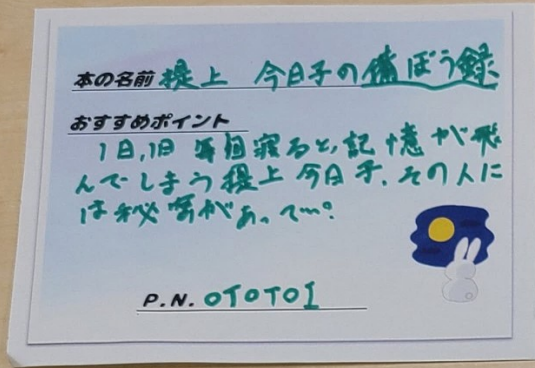 本の名前 掟上 今日子の備ぼう録
おすすめポイント
1日,1日 毎回寝ると,記憶が飛
んでしまう掟上 今日子.その人に
は秘密があって…?
P.N. OTOTOI